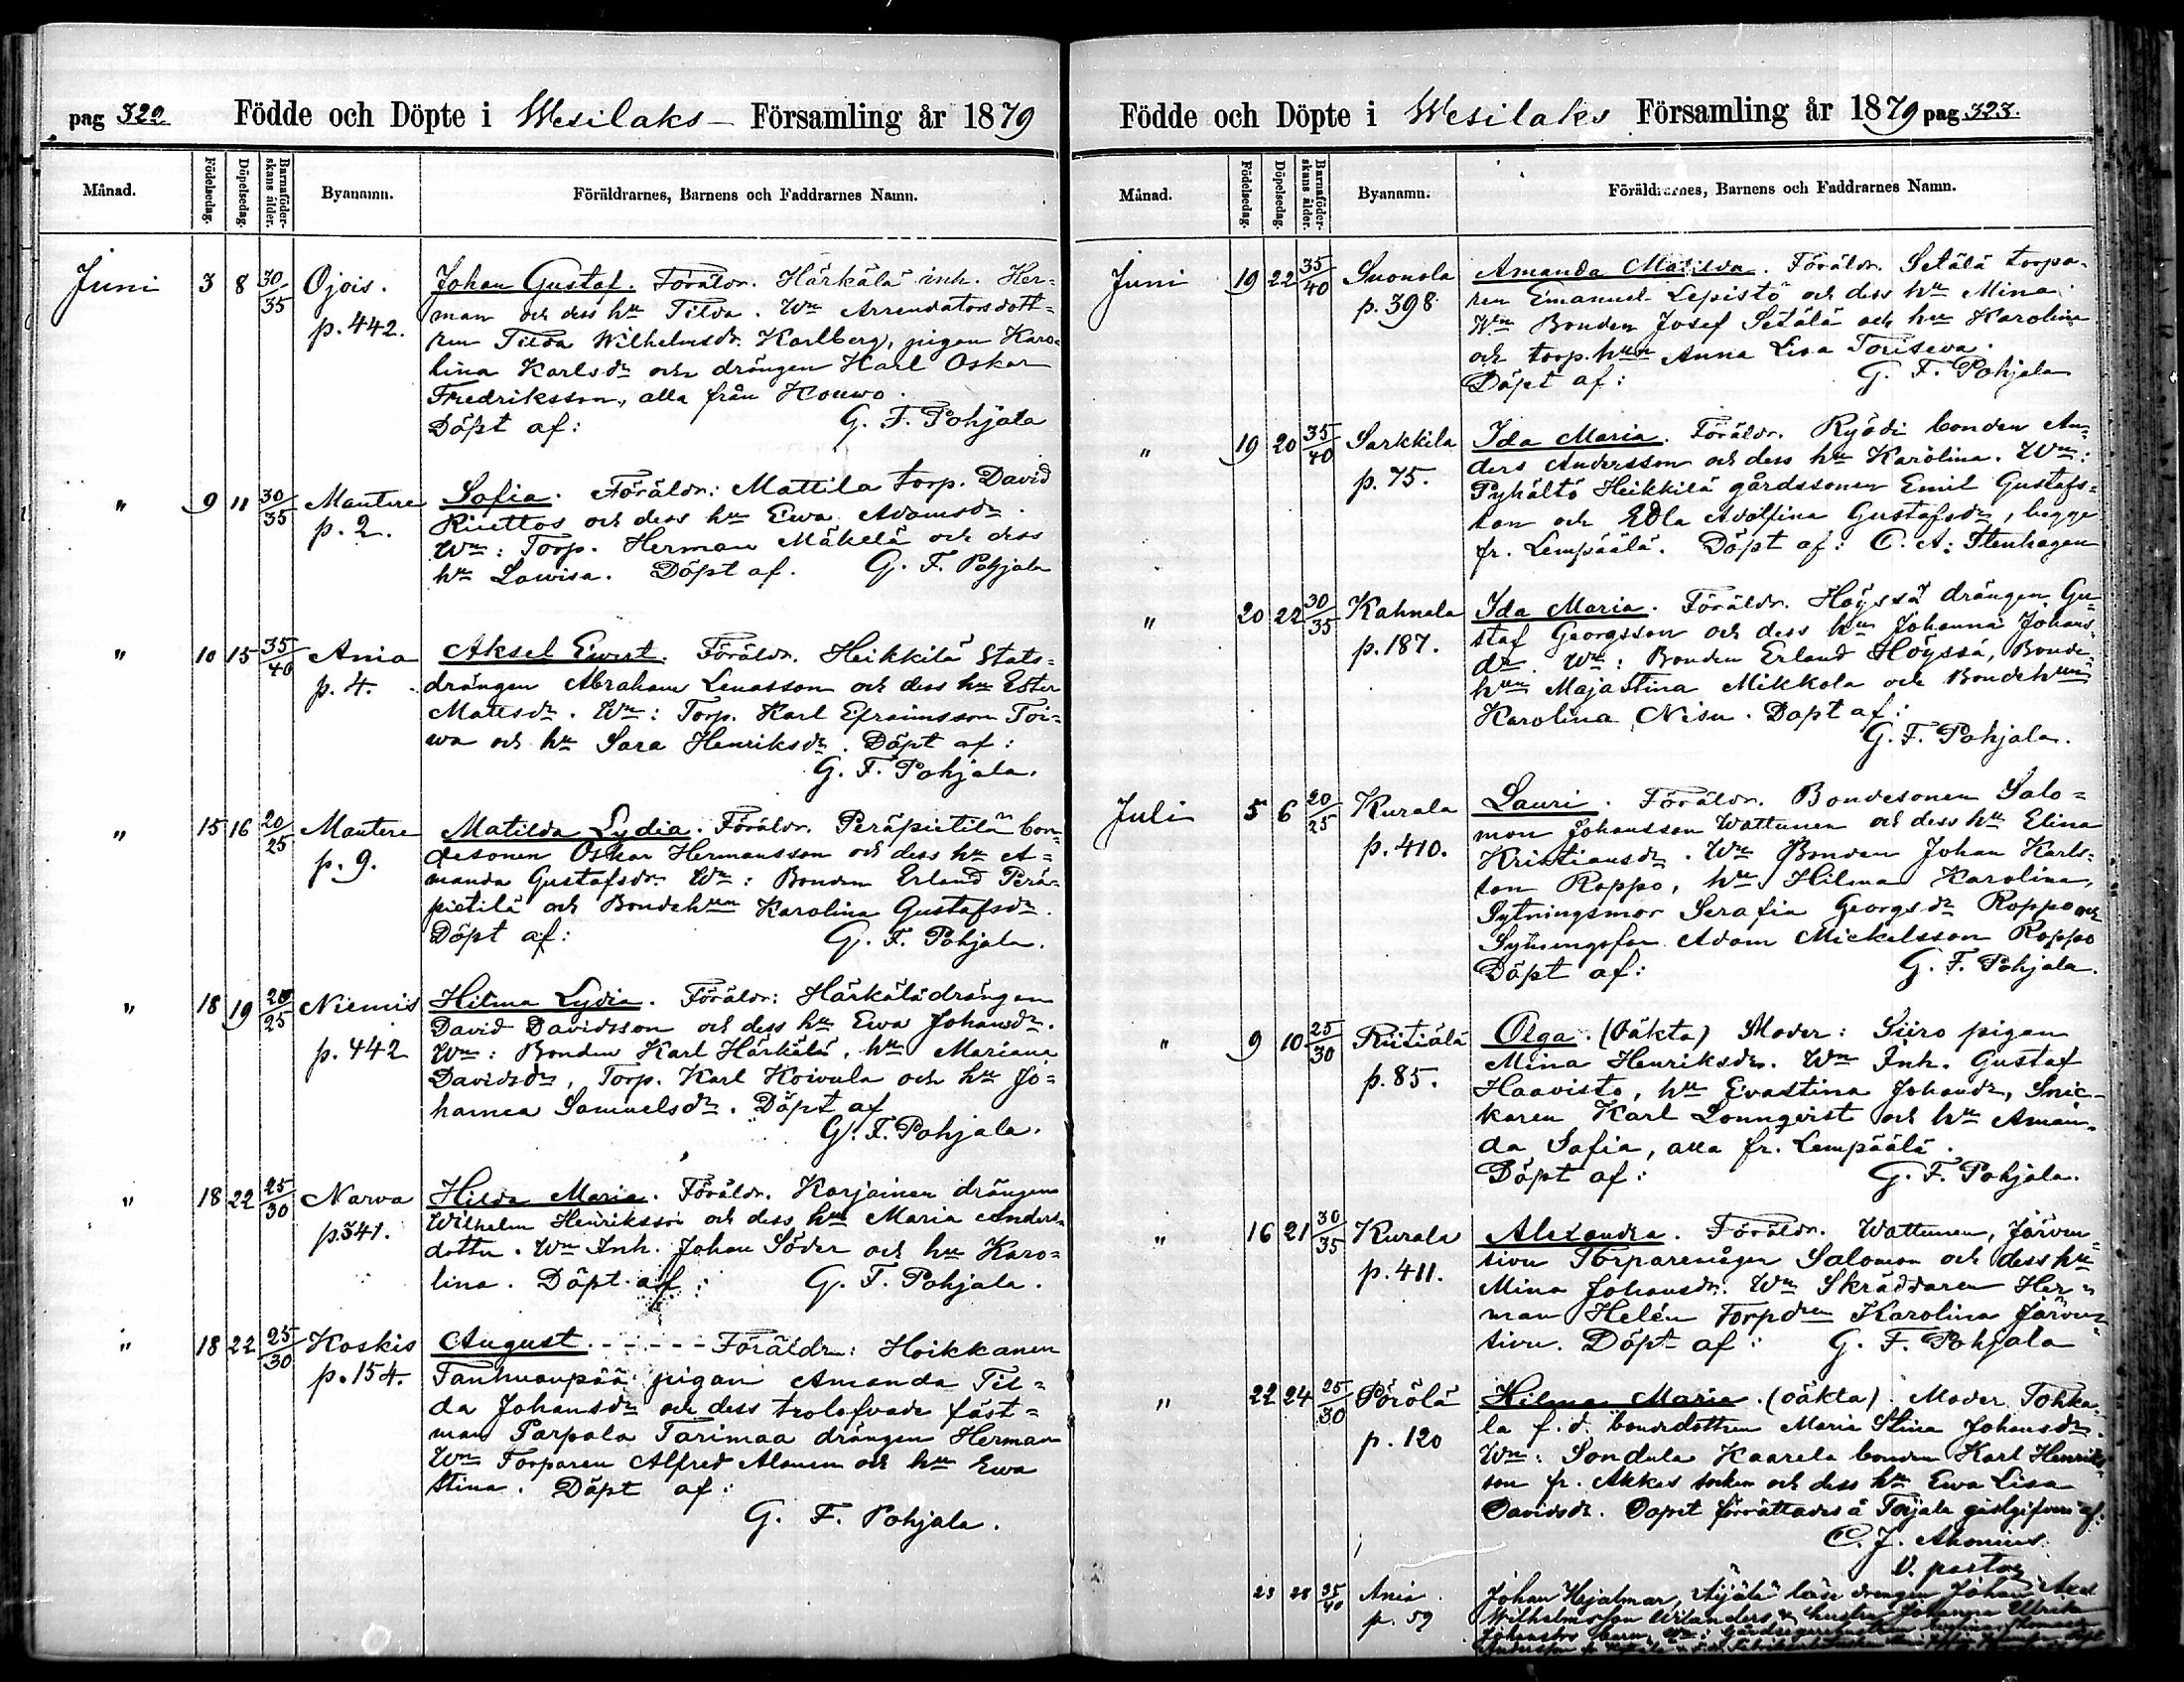 pag 322.
Födde och Döpte i Wesilaks Församling år 1879
Månad.
Födelsedag.
Döpelsedag.
Barnaföder-
skans ålder.
Byanamn.
Föräldrarnes, Barnens och Faddrarnes Namn.
Juni 3 8 30/35 Ojois. p. 442.
Johan Gustaf. Föräldr. Härkälä inh. Her=
man och dess hu Tilda. Wn Arrendatorsdott=
ren Tilda Wilhelmsdr. Karlberg, pigan Karo=
lina Karlsdr och drängen Karl Oskar
Fredriksson, alla från Kouwo.
Döpt af: G. F. Pohjala
" 9 11 30/35 Mantere p. 2.
Sofia. Föräldr: Mattila torp. David
och dess hu Ewa Adamsdr.
Wn: Torp. Herman Mäkelä och dess
hu Lowisa. Döpt af. G. F. Pohjala
" 10 15 35/40 Ania p. 4.
Aksel Ewert. Föräldr. Heikkilä Stats=
drängen Abraham Lenasson och dess hu Ester
Mattsdr. Wn: Torp. Karl Efraimsson Toi=
wa och hu Sara Henriksdr. Döpt af:
G. F. Pohjala.
" 15 16 20/25 Mantere p. 9.
Matilda Lydia. Föräldr. Peräpietilä bon=
desonen Oskar Hermansson och dess hu A=
manda Gustafsdr. Wn: Bonden Erland Perä=
pietilä och Bondehun Karolina Gustafsdr.
Döpt af: G. F. Pohjala.
" 18 19 20/25 Niemis p. 442
Hilma Lydia. Föräldr: Härkälä drängen
David Davidsson och dess hu Ewa Johansdr.
Wn: Bonden Karl Härkälä, hu Mariana
Davidsdr, Torp. Karl Koivula och hu Jo=
hanna Samuelsdr. Döpt af
G. F. Pohjala.
" 18 22 25/30 Narva p. 341.
Hilda Maria. Föräldr. Karjainen drängen
Wilhelm Henriksson och dess hu Maria Anders=
dotter. Wn Inh. Johan Söder och hu Karo=
lina. Döpt af: G. F. Pohjala.
" 18 22 25/30 Koskis p. 154.
August. - - - - - Föräldr: Hoikkanen
Tanhuanpää pigan Amanda Til=
da Johansdr och dess trolofvade fäst=
man Parpala Tarimaa drängen Herman
Wn Torparen Alfred Alanen och hu Ewa
Stina. Döpt af:
G. F. Pohjala.
Födde och Döpte i Wesilaks Församling år 1879 pag 323.
Månad.
Födelsedag.
Döpelsedag.
Barnaföder-
skans ålder.
Byanamn.
Föräldrarnes, Barnens och Faddrarnes Namn.
Juni 19 22 35/40 Suonola p. 398
Amanda Matilda. Föräldr. Setälä torpa=
ren Emanuel Lepistö och dess hu Mina.
Wn Bonden Josef Setälä och hu Karolina
och torp. hun Anna Lisa
Döpt af: G. F. Pohjala
" 19 20 35/40 Sarkkila p. 75.
Ida Maria. Föräldr. Ryödi bonden An=
ders Andersson och dess hu Karolina. Wn:
Pyhältö Heikkilä gårdssonen Emil Gustafs=
son och Edla Adolfina Gustafsdr, begge
fr. Lempäälä. Döpt af: C. A. Stenhagen
" 20 22 30/35 Kahnala p. 187.
Ida Maria. Föräldr. Höyssä drängen Gu=
staf Georgsson och dess hu Johanna Johans=
dr. Wn: Bonden Erland Höyssä, Bonde=
hun Majastina Mikkola och Bondehun
Karolina Nisu. Döpt af:
G. F. Pohjala.
Juli 5 6 20/25 Kurala p. 410.
Lauri. Föräldr. Bondesonen Salo=
mon Johansson Wattunen och dess hu Elina
Kristiansdr. Wn Bonden Johan Karls=
son Roppo, hu Hilma Karolina,
Sytningsmor Serafia Georgsdr Roppo och
Sytningsfar Adam Mickelsson Roppo
Döpt af: G. F. Pohjala.
" 9 10 25/30 Riitiälä p. 85.
Olga. (Oäkta) Moder: Siiro pigan
Mina Henriksdr. Wn Inh. Gustaf
Haavisto, hu Evastina Johansdr, Snic=
karen Karl Lonnqvist och hu Aman=
da Sofia, alla fr. Lempäälä.
Döpt af: G. F. Pohjala.
" 16 21 30/35 Kurala p. 411.
Alexandra. Föräldr. Wattunen, Järven=
sivu Torparemågen Salomon och dess hu
Mina Johansdr. Wn Skräddaren Her=
man Helén Torpdren Karolina Järven=
sivu. Döpt af: G. F. Pohjala
" 22 24 25/30 Pörölä p. 120
Hilma Maria. (oäkta). Moder Tohka=
la f. d. bondedottren Maria Stina Johansdr.
Wn: Sondula Kaarela bonden Karl Henriks=
son fr. Akkas socken och dess hu Ewa Lisa
Davidsdr. Dopet förrättades å gästgifveri af:
C. J. Ahonius.
V. pastor
23 28 35/40 Ania p. 59
Johan Hjalmar, Äijälä drengen Johan Axel
Wilhelmsson Wilanders & hustru Johanna Ulrika
barn. Wn: